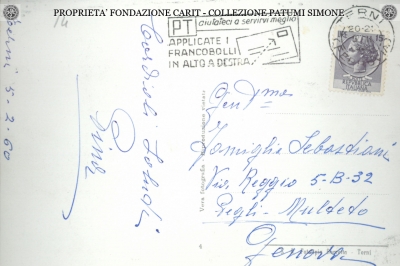 PROPRIETA' FONDAZIONE CARIT - COLLEZIONE PATUMI SIMONE
14
PT aiutateci a servirvi meglio
APPLICATE I
FRANCOBOLLI
IN ALTO A DESTRA
TERNI
Terni 5-2-60
Cordiali Saluti
Gent/ma
Famiglia Sebastiani
Via Reggio 5-B-32
Pegli - Multedo
Genova
Vera Fotografia
Terni